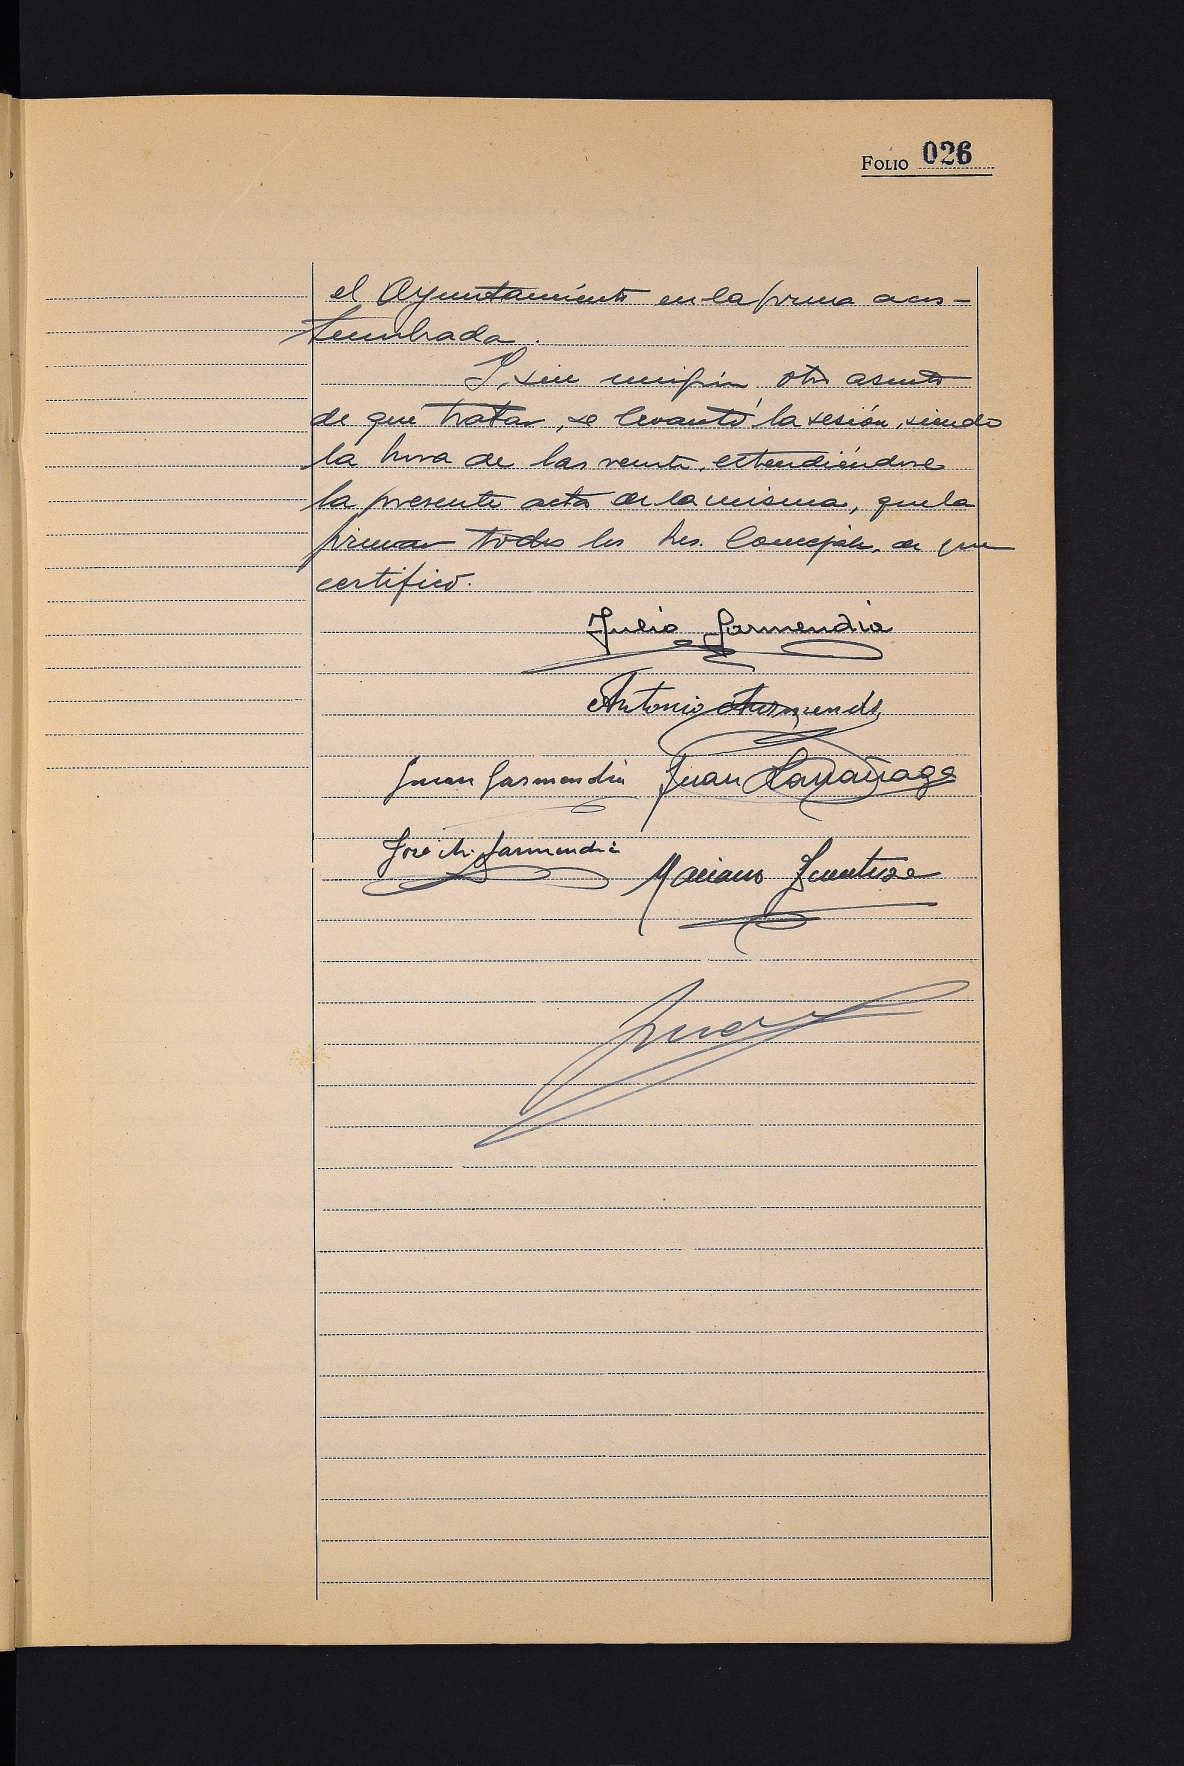 FOLIO 026
el Ayuntamiento en la forma acos-
tumbrada.
Y, sin ningún otro asunto
de que tratar, se levantó la sesión, siendo
la hora de las veinte, extendiéndose
la presente acta de la misma, que la
firman todos los Sres. Concejales, de que
certifico.
Julio Garmendia
Antonio
Juan Garmendia Juan Larrañaga
José M. Garmendia
Mariano